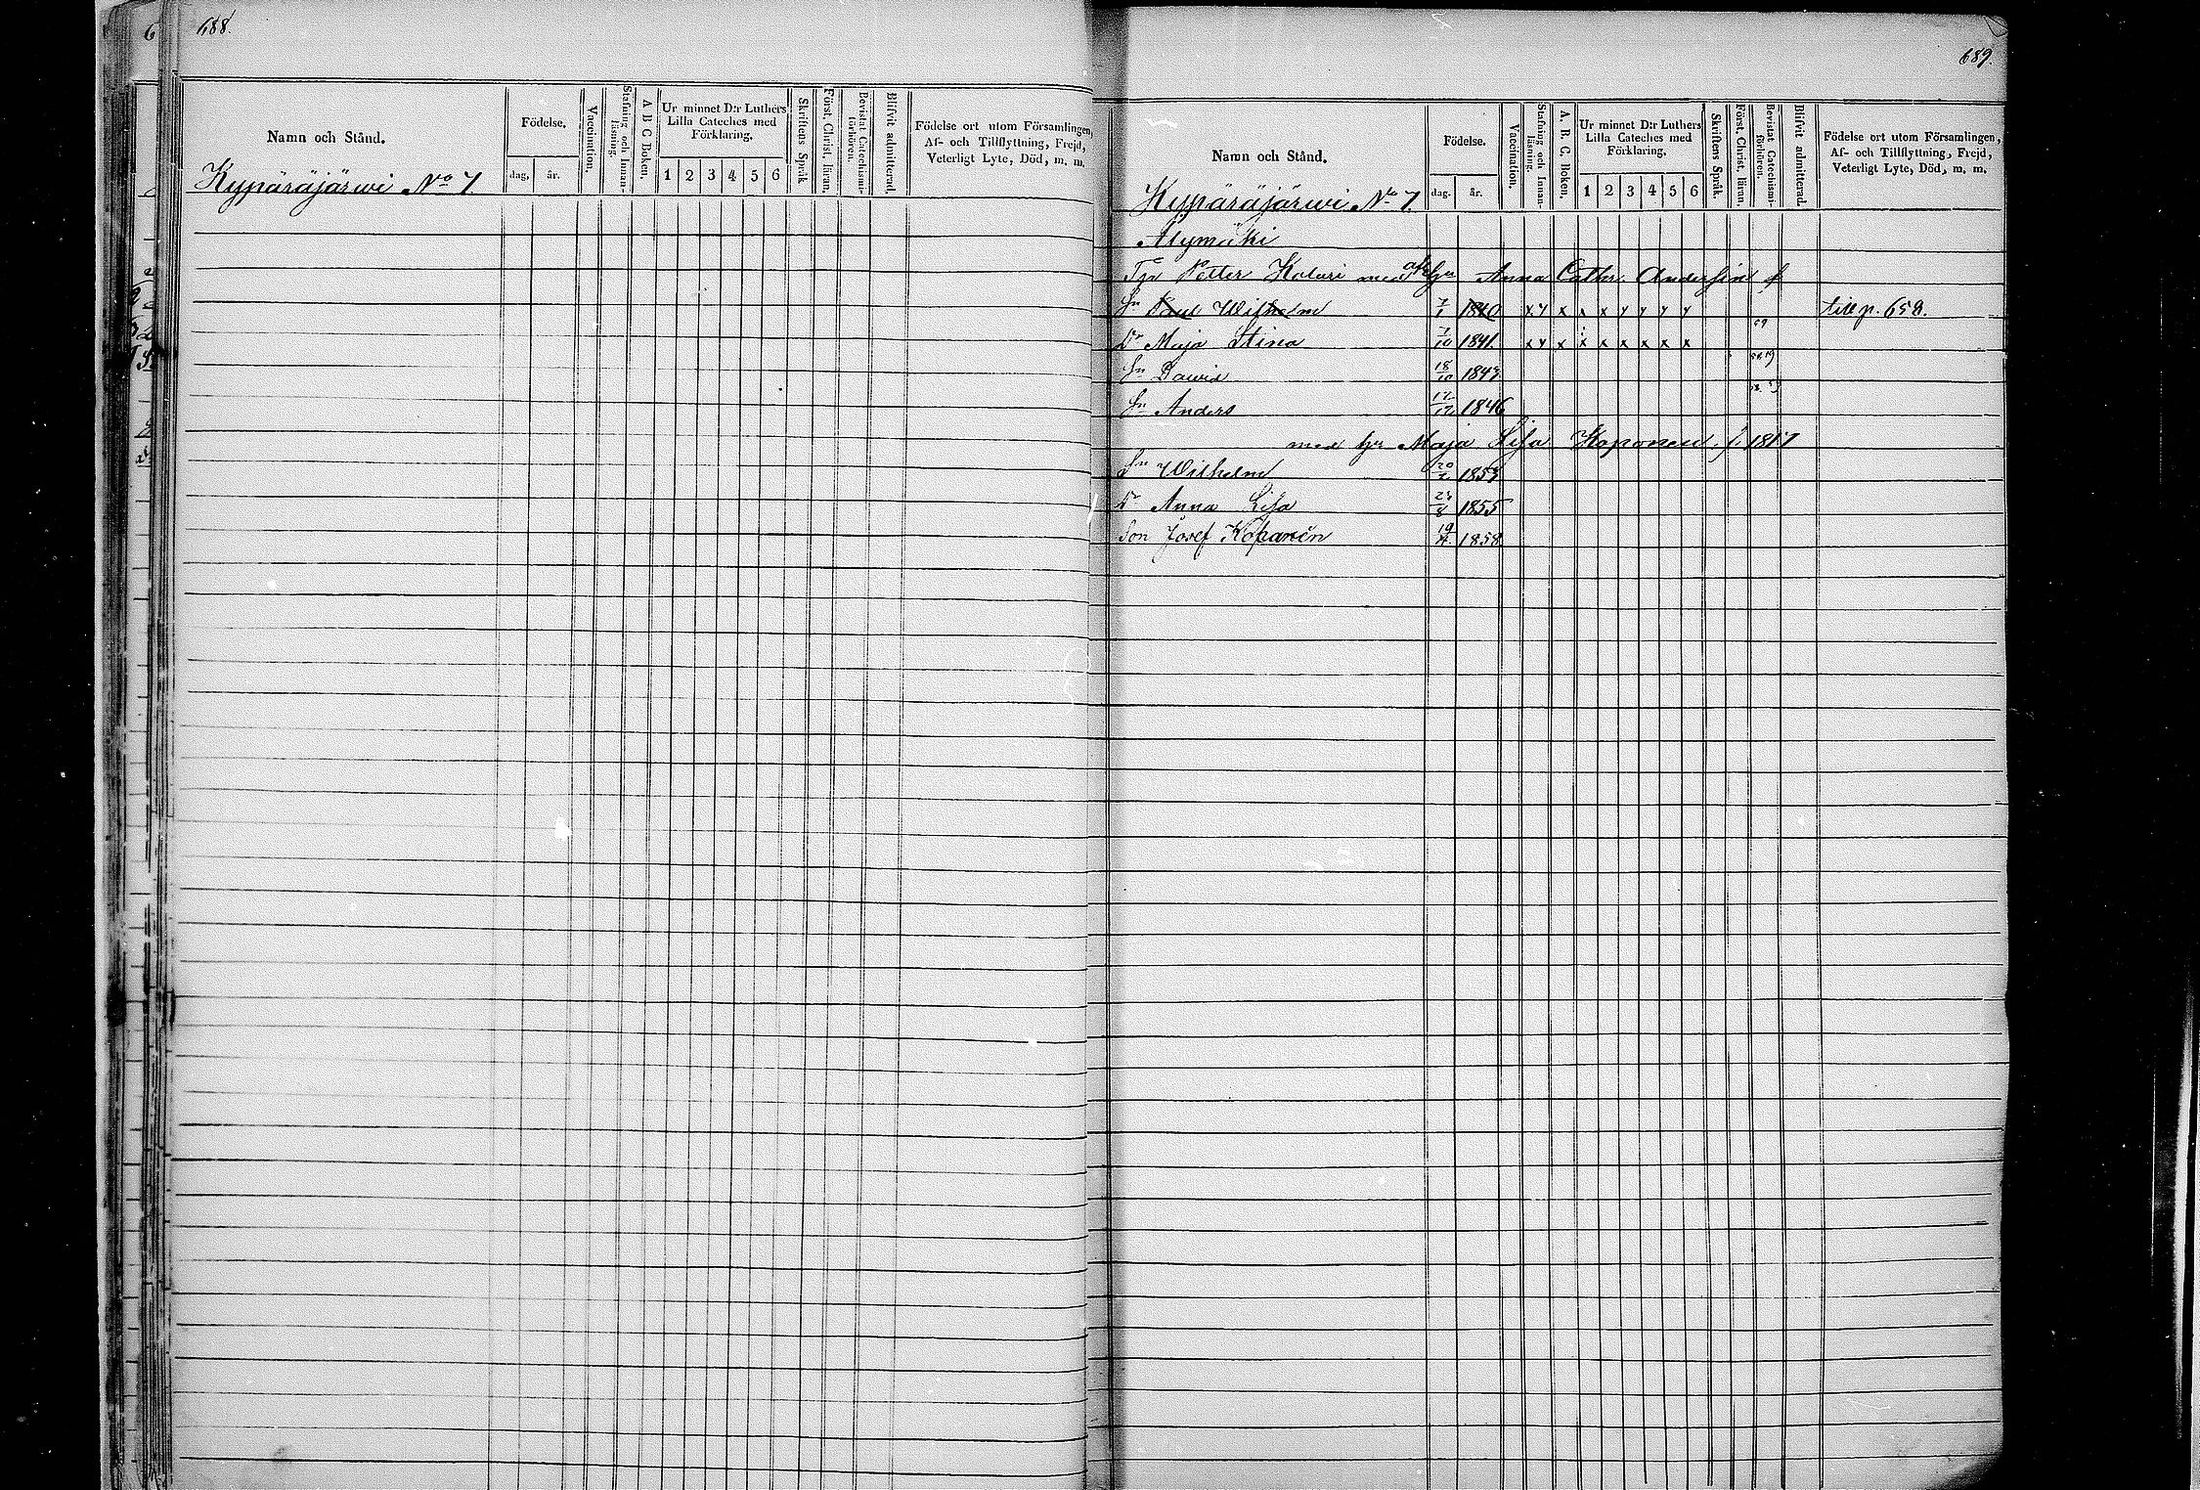 688.
Namn och Stånd.
Födelse.
dag.
år.
Vaccination.
Stafning och Innan-läsning.
A B C Boken.
Ur minnet D:r Luthers Lilla Cateches med Förklaring.
1 2 3 4 5 6
Skriftens Språk
Först. Christ. läran.
Bevistat Catechismi-förhören.
Blifvit admitterad.
Födelse ort utom Församlingen,
Af- och Tillflyttning, Frejd,
Veterligt Lyte, Död, m. m.
Kypäräjärwi No 7.
689.
Namn och Stånd.
Födelse.
dag.
år.
Vaccination.
Stafning och Innan-läsning.
A. B. C. Boken.
Ur minnet D:r Luthers Lilla Cateches med Förklaring.
1 2 3 4 5 6
Skriftens Språk.
Först. Christ. läran.
Bevistat Catechismi-förhören.
Blifvit admitterad.
Födelse ort utom Församlingen,
Af- och Tillflyttning, Frejd,
Veterligt Lyte, Död, m. m.
Kypäräjärwi No 7.
Alymäki
Petter Kolari med afl. hu Anna Cathr. Anders
Sn Paul Wilhelm 7/1 1840 x y x x x y y y y till p. 658.
Dr Maja Stina 7/10 1841. x y x x x x x x x
Sn Dawid 18/10 1843
Sn Anders 17/12 1846
med hu Maja Lisa Koponen, f. 1817
Sn Wilhelm 1853
Dr Anna Lisa 1855
Son Josef Kopanen 19/4. 1858